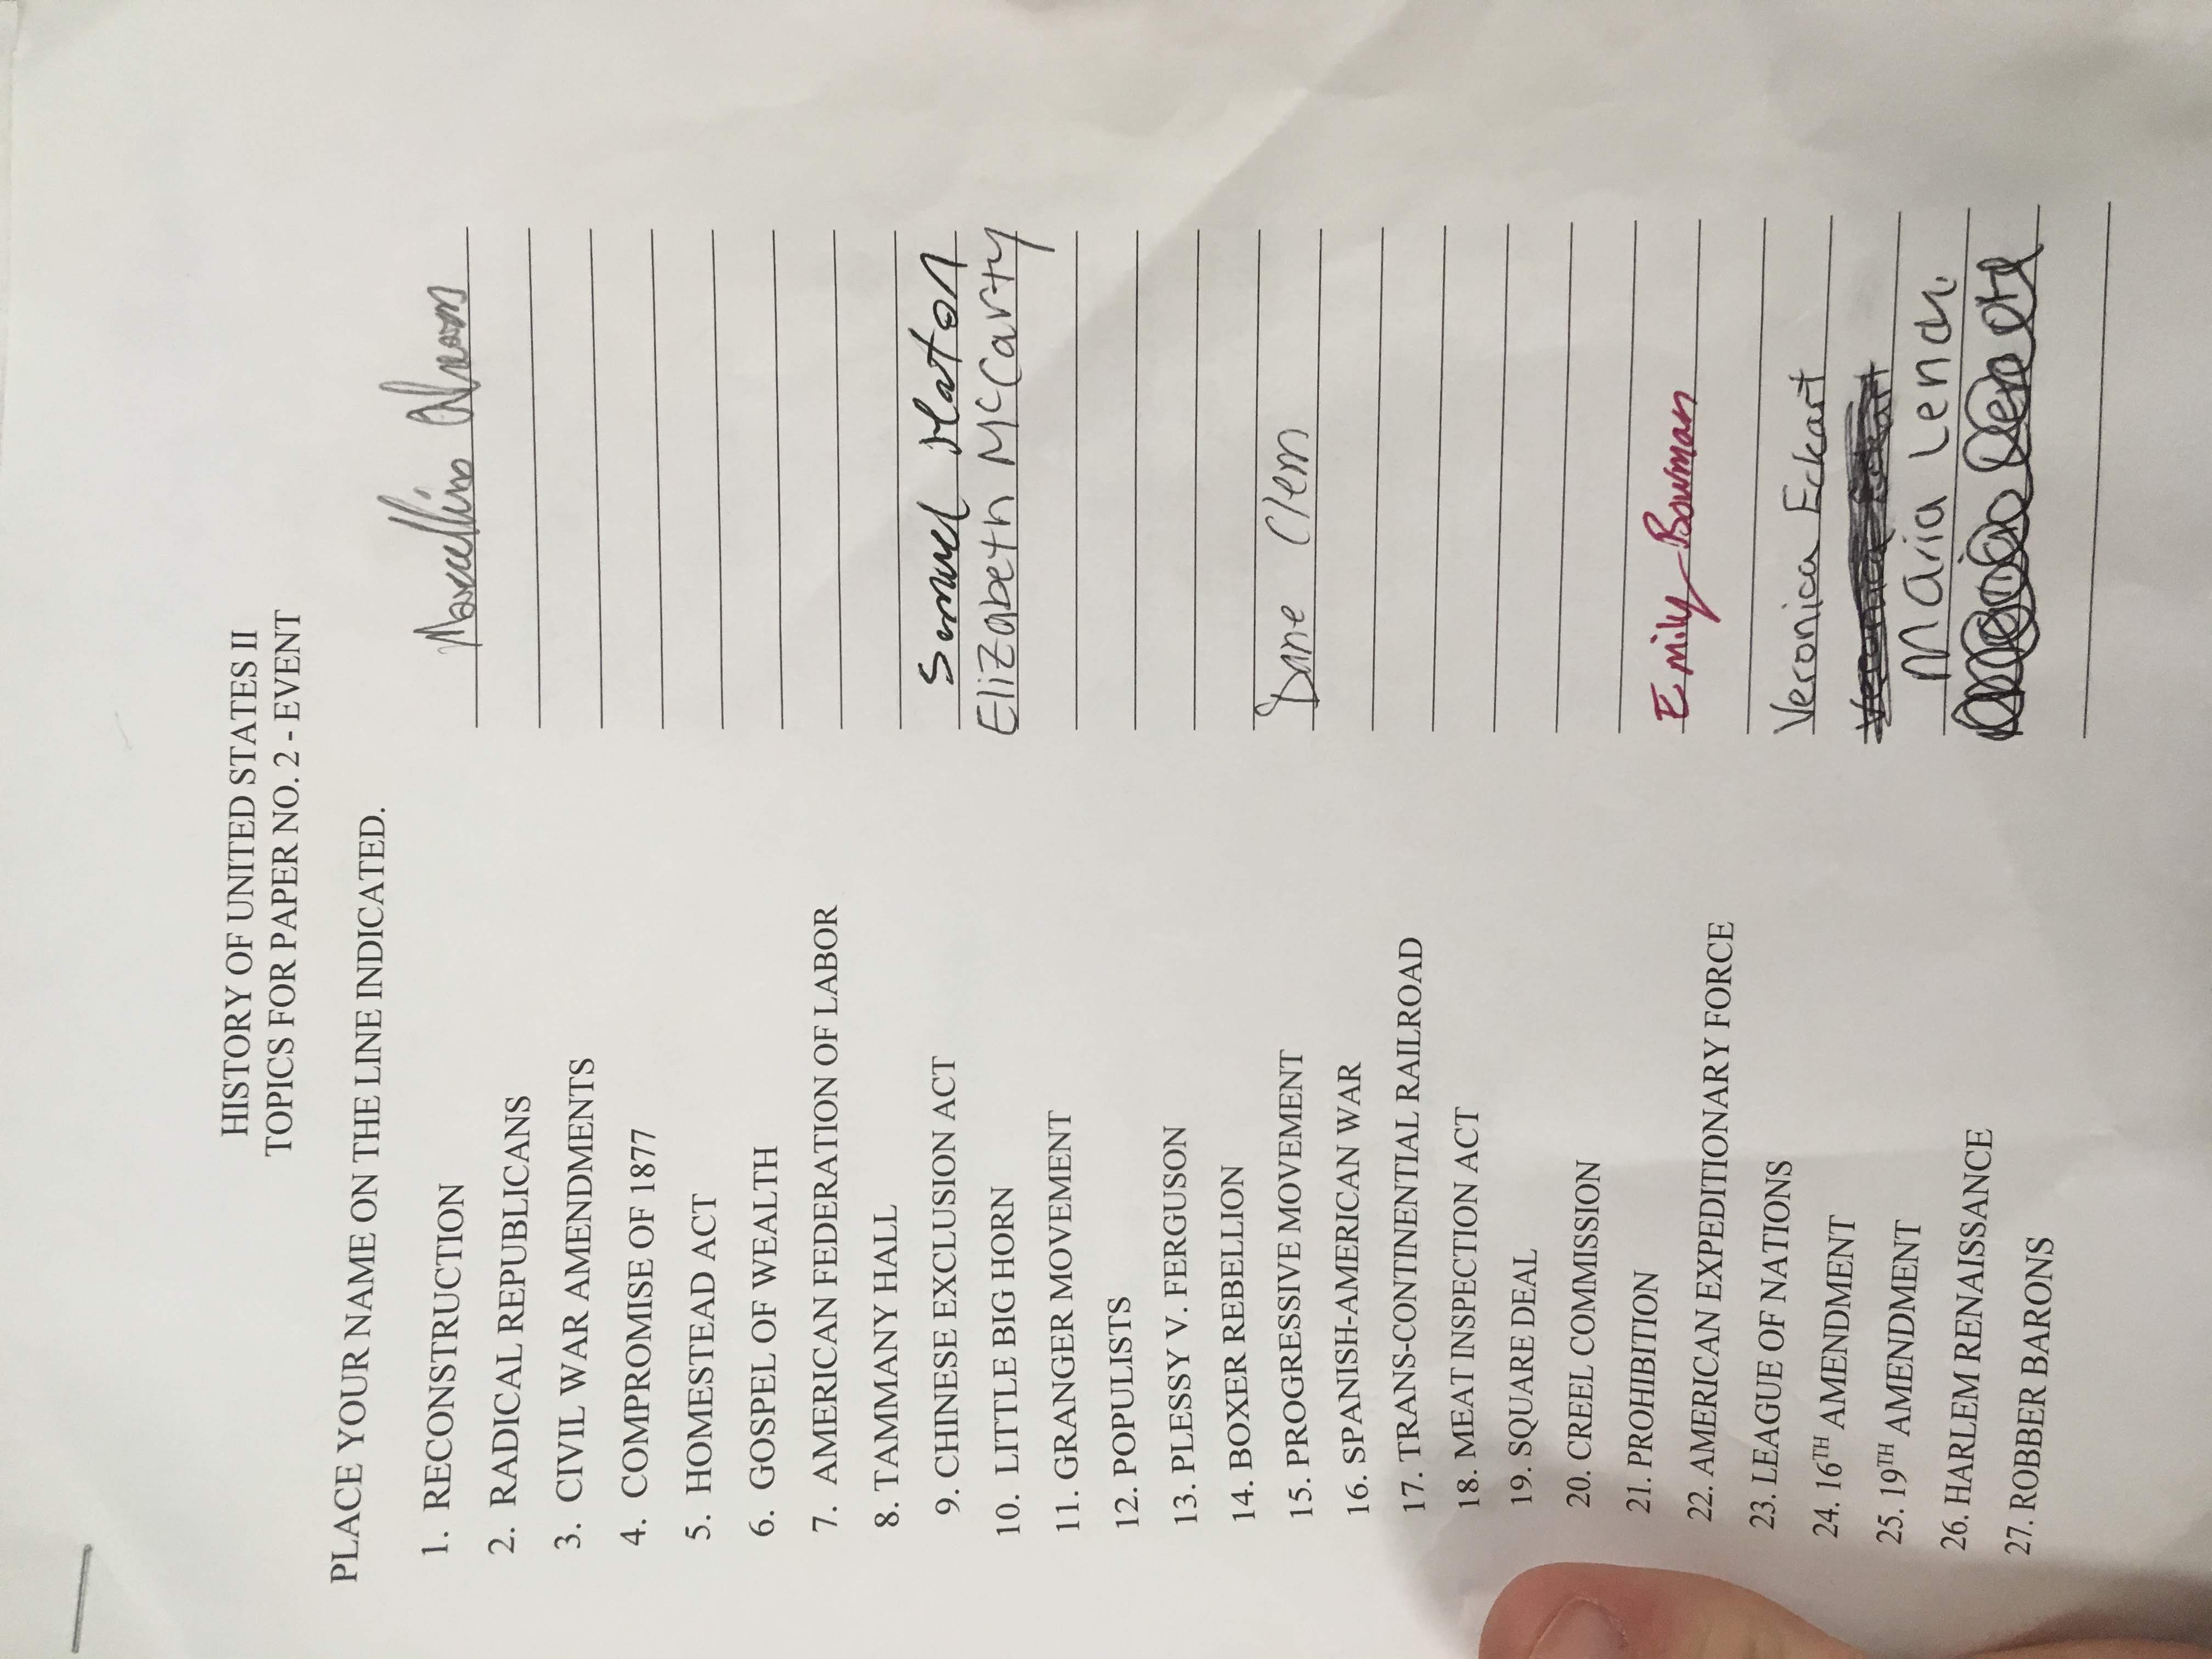 HISTORY OF UNITED STATES II
TOPICS FOR PAPER NO. 2 - EVENT
PLACE YOUR NAME ON THE LINE INDICATED.
1. RECONSTRUCTION
2. RADICAL REPUBLICANS
3. CIVIL WAR AMENDMENTS
4. COMPROMISE OF 1877
5. HOMESTEAD ACT
6. GOSPEL OF WEALTH
7. AMERICAN FEDERATION OF LABOR
8. TAMMANY HALL
9. CHINESE EXCLUSION ACT Samuel
10. LITTLE BIG HORN Elizabeth McCarty
11. GRANGER MOVEMENT
12. POPULISTS
13. PLESSY V. FERGUSON
14. BOXER REBELLION
15. PROGRESSIVE MOVEMENT Dane Clem
16. SPANISH-AMERICAN WAR
17. TRANS-CONTINENTIAL RAILROAD
18. MEAT INSPECTION ACT
19. SQUARE DEAL
20. CREEL COMMISSION
21. PROHIBITION Emily Bowman
22. AMERICAN EXPEDITIONARY FORCE
23. LEAGUE OF NATIONS Veronica Eckart
24. 16TH AMENDMENT
25. 19TH AMENDMENT Maria
26. HARLEM RENAISSANCE
27. ROBBER BARONS